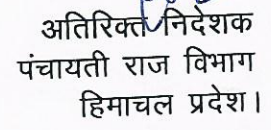 अतिरिक्त निदेशक
पंचायती राज विभाग
हिमाचल प्रदेश।